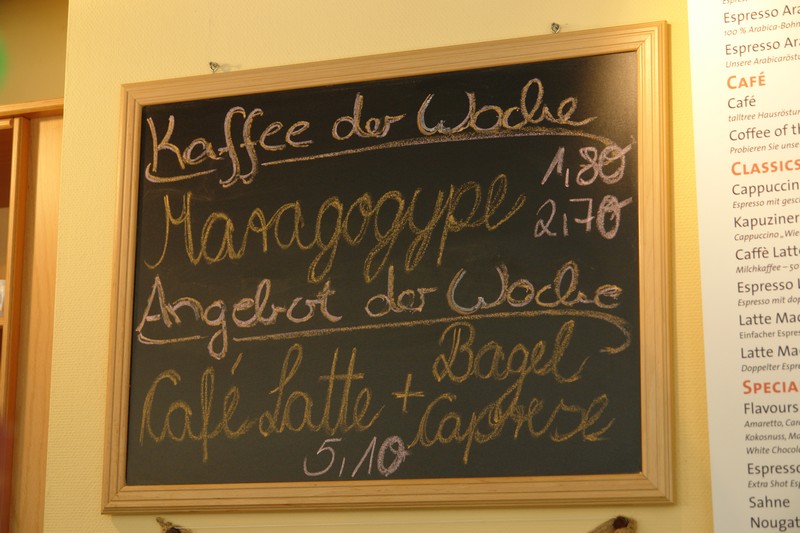 Kaffee der Woche
1,80
Maragogype 2,70
Angebot der Woche
Café Latte + Bagel Caprese
5,10
Espresso Ara
100 % Arabica-Bohn
Espresso Ara
Unsere Arabicaröst
CAFÉ
Café
talltree Hausröstun
Coffee of th
Probieren Sie unse
CLASSICS
Cappuccin
Espresso mit gesc
Kapuziner
Cappuccino „Wie
Caffè Latt
Milchkaffee – 50
Espresso
Espresso mit dop
Latte Mac
Einfacher Espres
Latte Mac
Doppelter Espre
SPECIA
Flavours
Amaretto, Car
Kokosnuss, Ma
White Chocol
Espresso
Extra Shot Esp
Sahne
Nougat